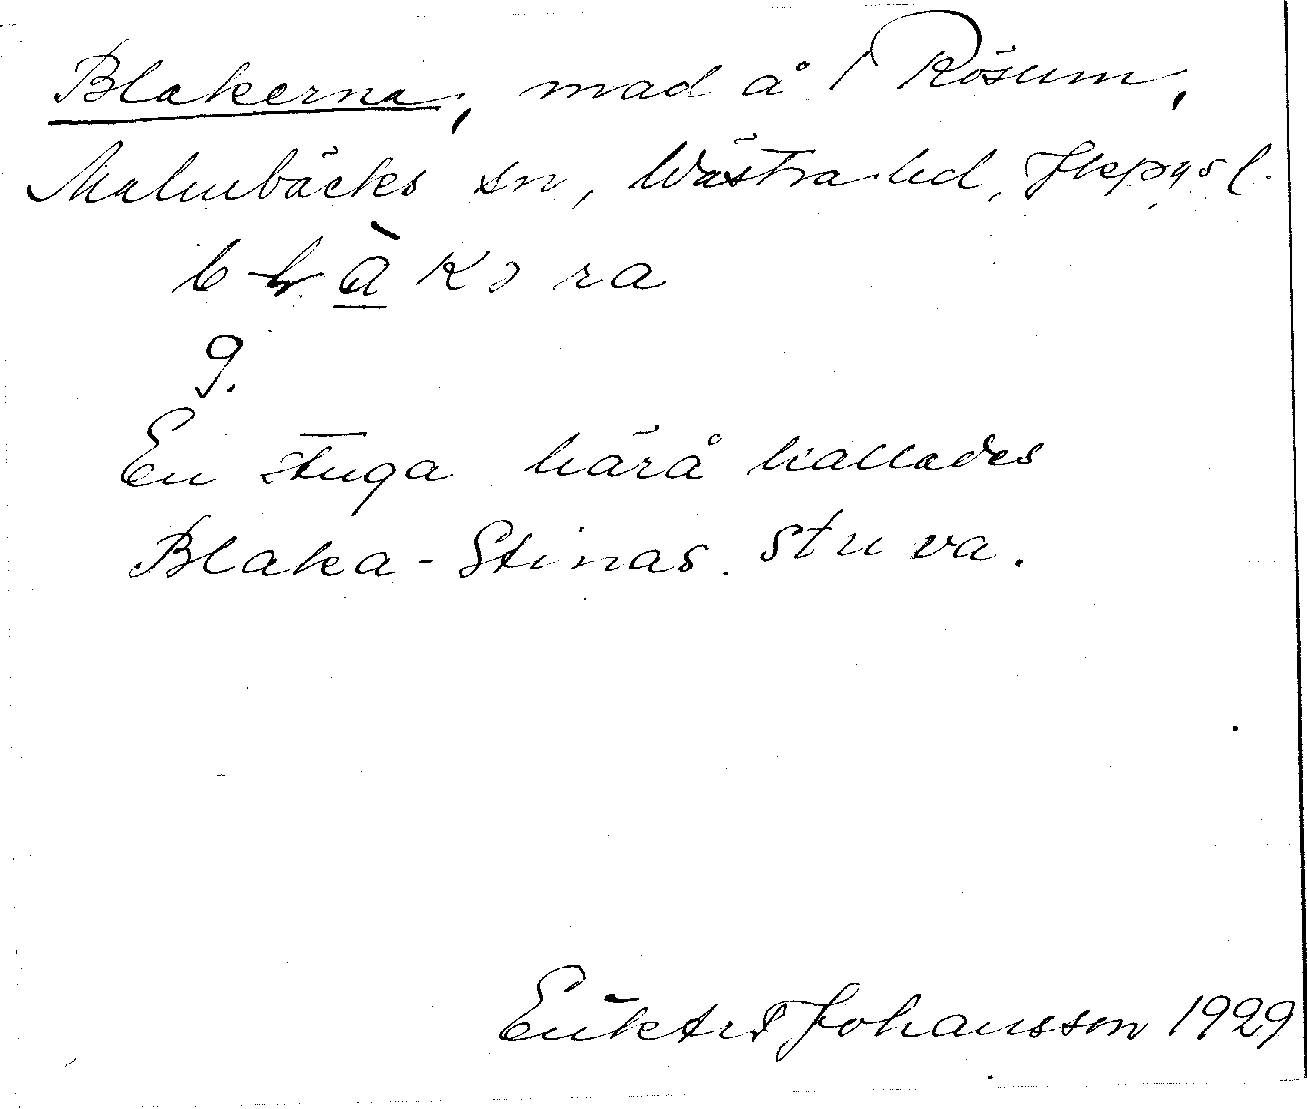 Blakerna, mad å Rösum,
Malmbäcks sn, Västra hd, Jkpgs l.
blàkəra
g.
En stuga härå kallades
Blaka-Stinas stuva.
Johansson 1929